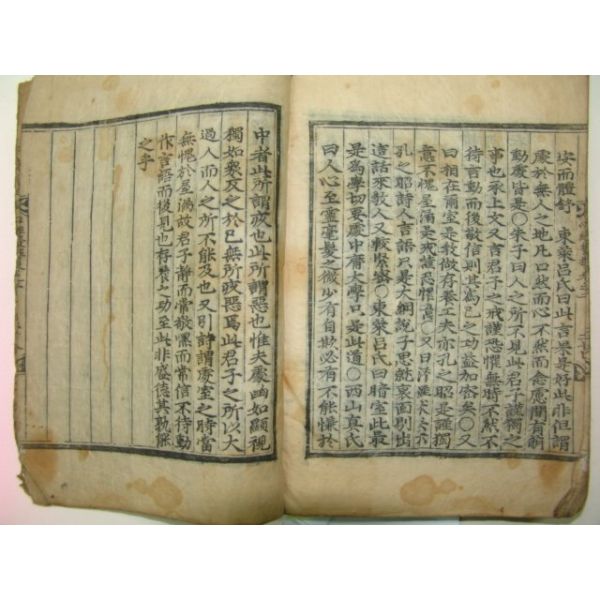 安而體舒 東萊呂氏曰此言果是好此非但謂
處於無人之地凡口然而心不然而念慮間有斯
動處皆是○朱子曰人之所不見此君子謹獨之
事也承上文又言君子之戒謹恐懼無時不然不
待言動而後敬信則其爲己之功益加密矣○又
曰相在爾室是教做存養工夫亦孔之昭是謹獨
意不愧屋漏是戒謹恐懼意○又曰
孔之昭詩人言語只是大綱說子思就裏面剔出
這話來教人又較緊密○東萊呂氏曰暗室此最
是爲學切要處中庸大學只是此道○西山眞氏
曰人心至靈毫髮之微少有自欺必有不能慊於
中者此所謂疚也此所謂惡也惟夫處幽如顯視
獨如衆反之於己無所疚惡焉此君子之所以大
過人而人之所不能及也又引詩謂處室之時當
無愧於屋漏故君子靜而常敬嘿而常信不待動
作言語而後見也存養之功至此非盛德其孰能
之乎